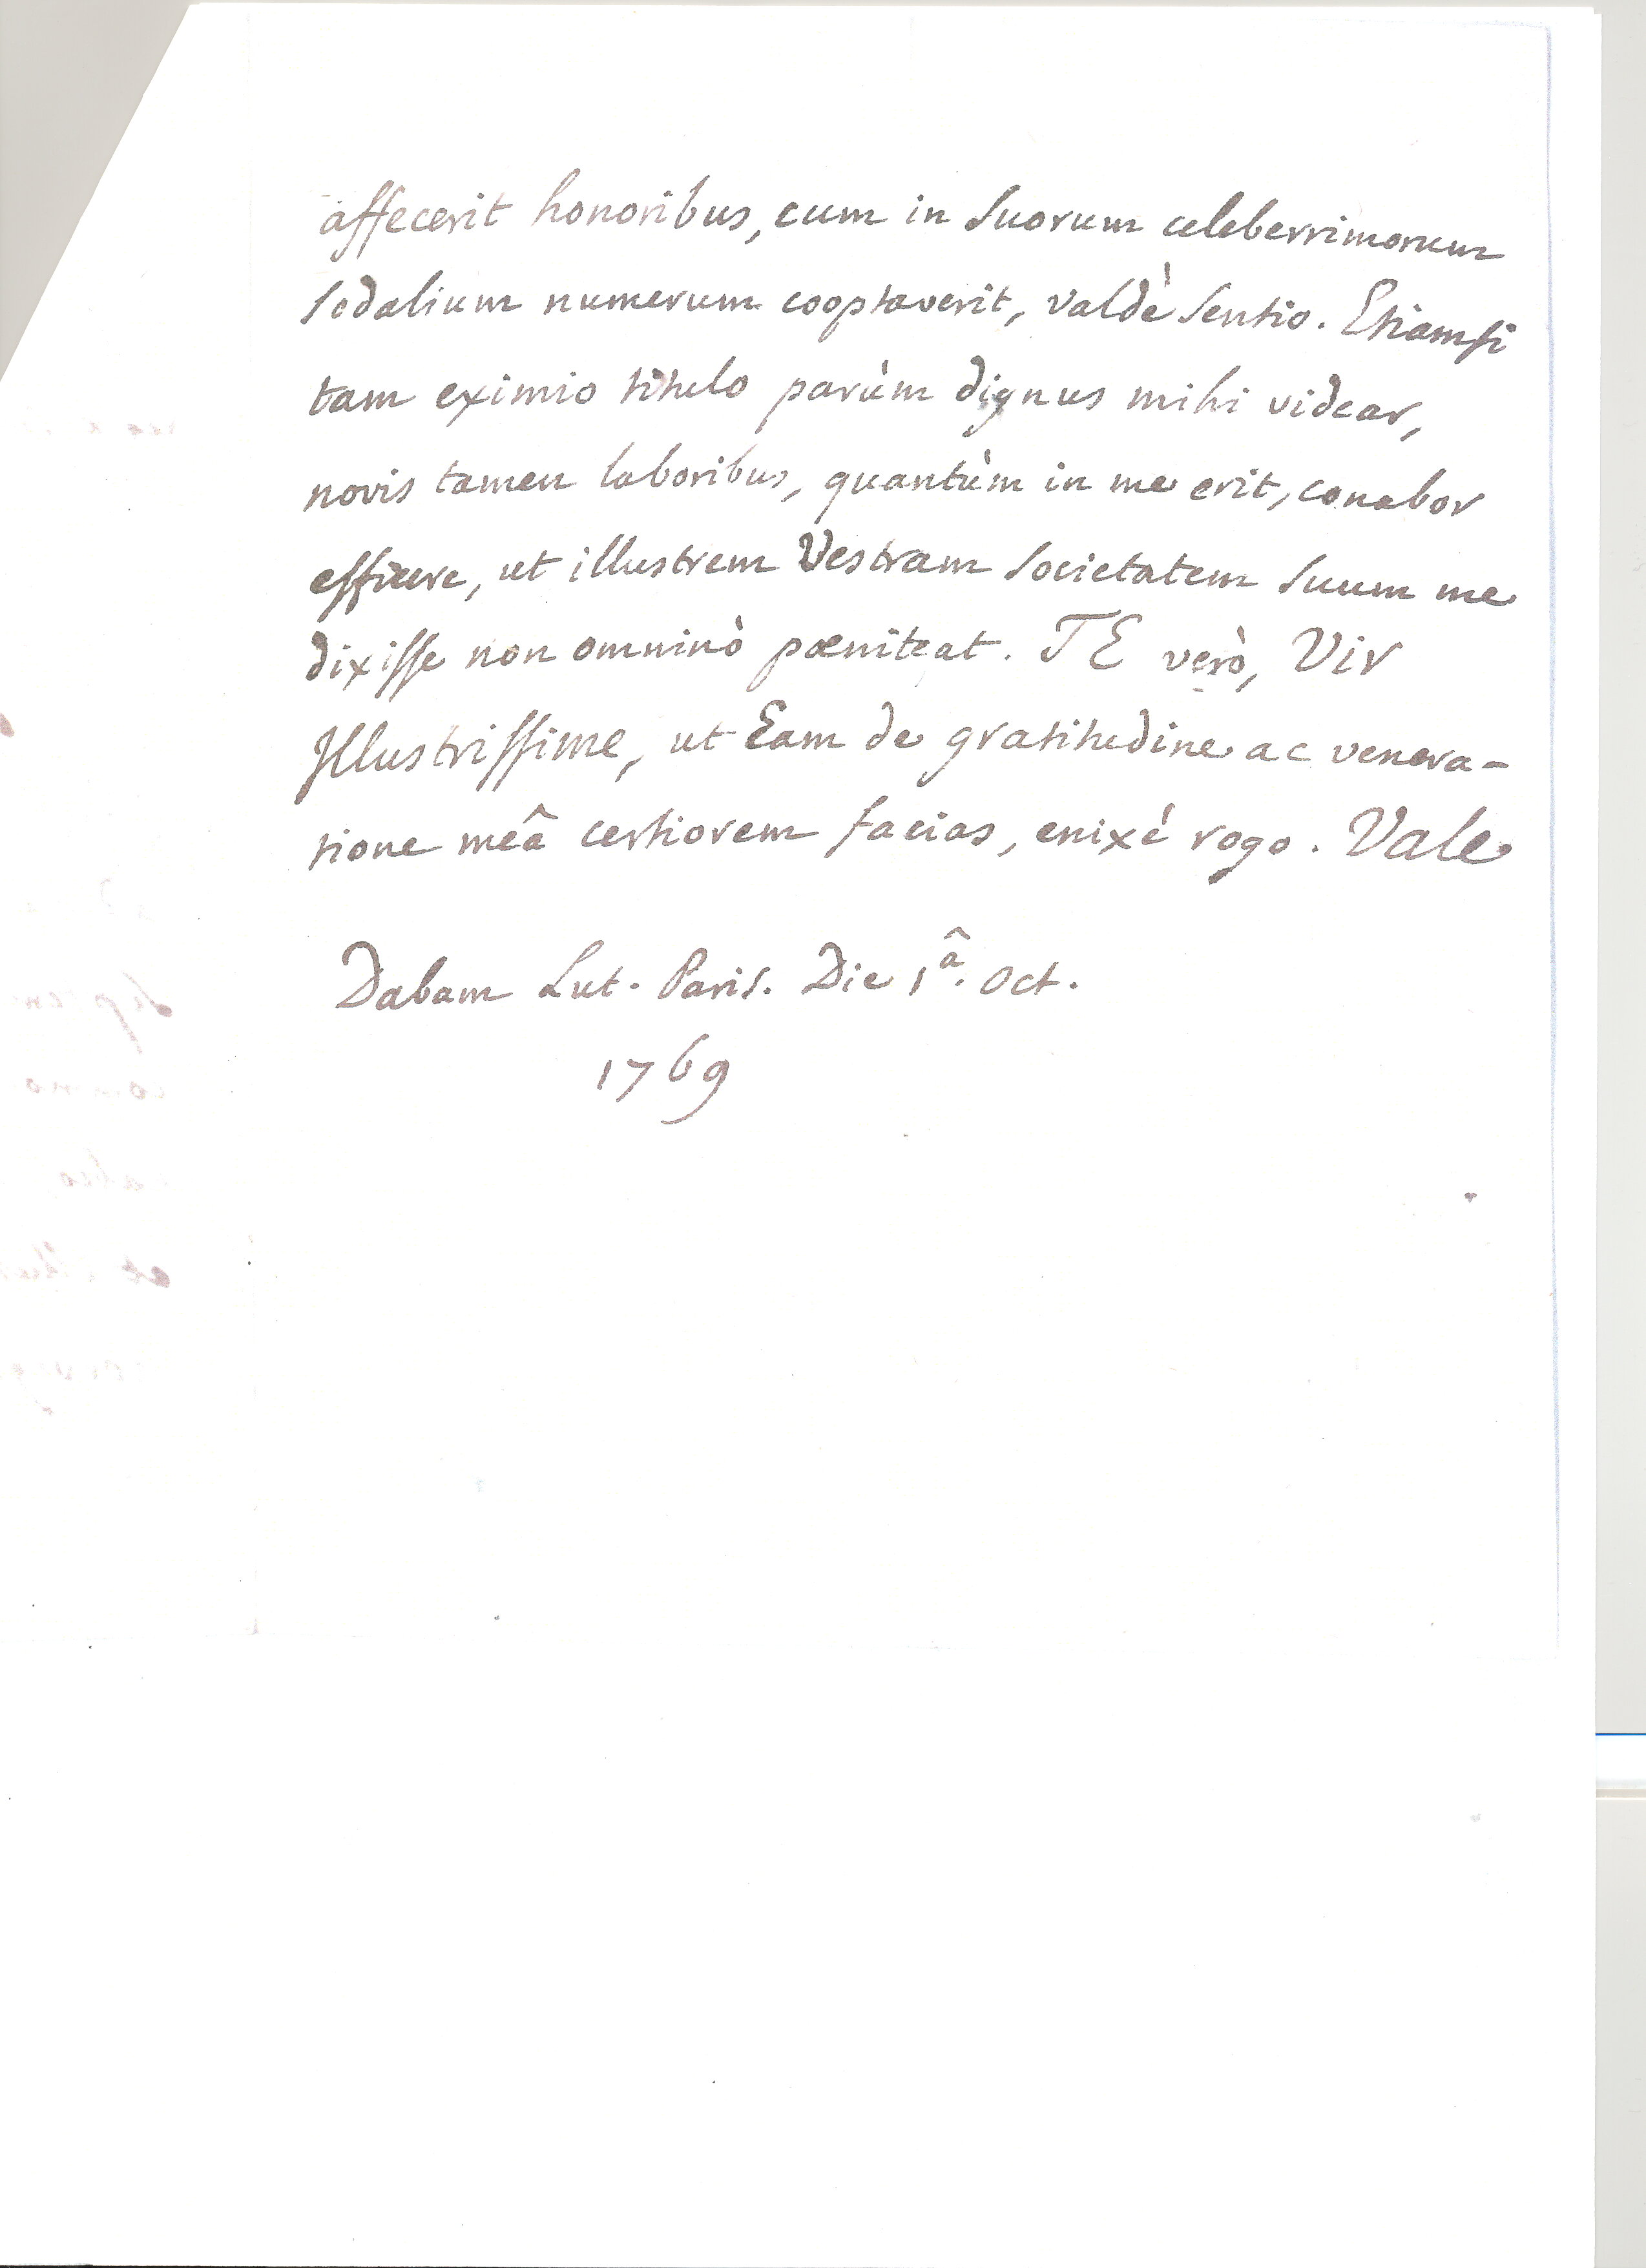 affecerit honoribus, cum in suorum celeberrimorum
sodalium numerum cooptaverit, valdè sentio. Etiamsi
tam eximio titulo parùm dignus mihi videar,
novis tamen laboribus, quantùm in me erit, conabor
efficere, ut illustrem Vestram societatem suum me
dixisse non omninò pœniteat. TE verò, Vir
Illustrissime, ut Eam de gratitudine ac venera-
tione meâ certiorem facias, enixè rogo. Vale
Dabam Lut. Paris. Die 1â. Oct.
1769